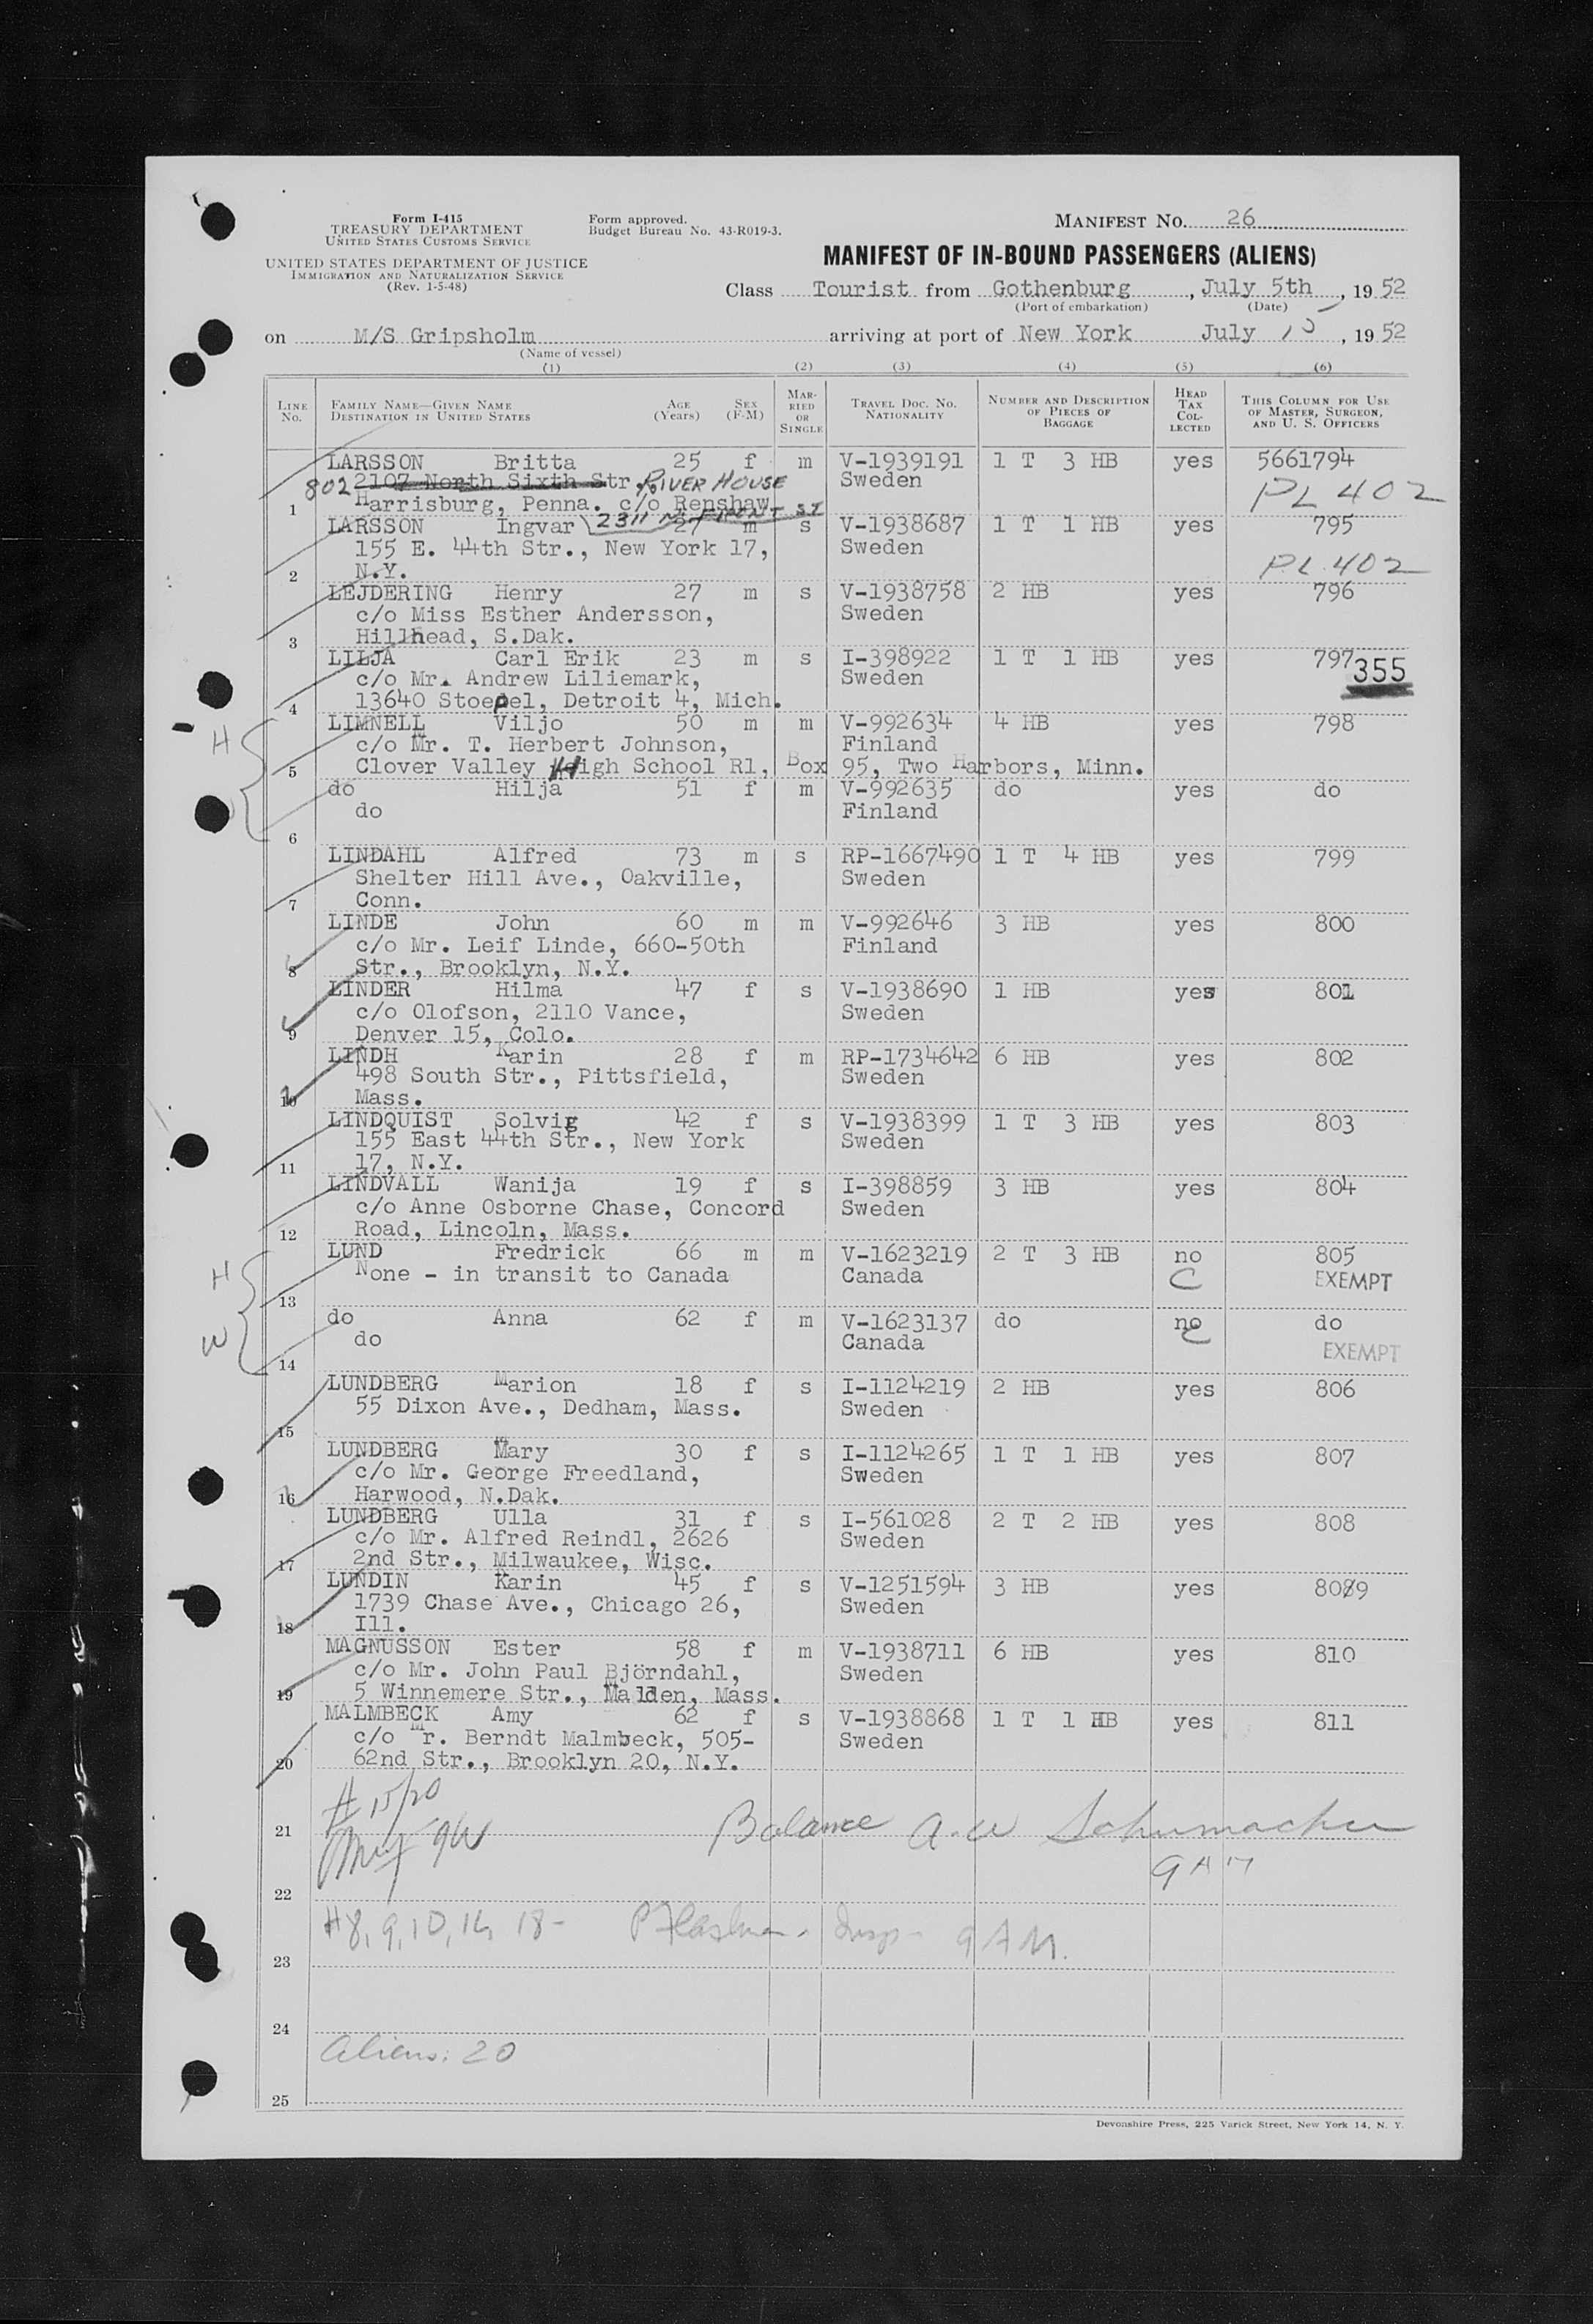 Form I-415
TREASURY DEPARTMENT
UNITED STATES CUSTOMS SERVICE
UNITED STATES DEPARTMENT OF JUSTICE
IMMIGRATION AND NATURALIZATION SERVICE
(Rev. 1-5-48)
Form approved.
Budget Bureau No. 43-R019-3.
MANIFEST NO. 26
MANIFEST OF IN-BOUND PASSENGERS (ALIENS)
Class Tourist from Gothenburg, July 5th, 1952
(Port of embarkation) (Date)
on M/S Gripsholm arriving at port of New York July 15, 1952
(Name of vessel)
(1) (2) (3) (4) (5) (6)
LINE No. FAMILY NAME—GIVEN NAME DESTINATION IN UNITED STATES AGE (Years) SEX (F-M) MARRIED OR SINGLE TRAVEL DOC. NO. NATIONALITY NUMBER AND DESCRIPTION OF PIECES OF BAGGAGE HEAD TAX COLLECTED THIS COLUMN FOR USE OF MASTER, SURGEON, AND U. S. OFFICERS
LARSSON Britta 25 f m V-1939191 1 T 3 HB yes 5661794
802 2107 North Sixth Str. RIVER HOUSE Sweden PL 402
1 Harrisburg, Penna. c/o Renshaw
2311 N. FRONT ST
LARSSON Ingvar 27 m s V-1938687 1 T 1 HB yes 795
155 E. 44th Str., New York 17, Sweden
2 N.Y. PL 402
LEJDERING Henry 27 m s V-1938758 2 HB yes 796
c/o Miss Esther Andersson, Sweden
3 Hillhead, S.Dak.
LILJA Carl Erik 23 m s I-398922 1 T 1 HB yes 797 355
c/o Mr. Andrew Liliemark, Sweden
4 13640 Stoepel, Detroit 4, Mich.
H LIMNELL Viljo 50 m m V-992634 4 HB yes 798
c/o Mr. T. Herbert Johnson, Finland
5 Clover Valley High School R1, Box 95, Two Harbors, Minn.
do Hilja 51 f m V-992635 do yes do
do Finland
6
LINDAHL Alfred 73 m s RP-1667490 1 T 4 HB yes 799
Shelter Hill Ave., Oakville, Sweden
7 Conn.
LINDE John 60 m m V-992646 3 HB yes 800
c/o Mr. Leif Linde, 660-50th Finland
8 Str., Brooklyn, N.Y.
LINDER Hilma 47 f s V-1938690 1 HB yes 801
c/o Olofson, 2110 Vance, Sweden
9 Denver 15, Colo.
LINDH Karin 28 f m RP-1734642 6 HB yes 802
498 South Str., Pittsfield, Sweden
10 Mass.
LINDQUIST Solvig 42 f s V-1938399 1 T 3 HB yes 803
155 East 44th Str., New York Sweden
11 17, N.Y.
LINDVALL Wanija 19 f s I-398859 3 HB yes 804
c/o Anne Osborne Chase, Concord Sweden
12 Road, Lincoln, Mass.
H LUND Fredrick 66 m m V-1623219 2 T 3 HB no 805
None - in transit to Canada Canada C EXEMPT
13
W do Anna 62 f m V-1623137 do no do
do Canada C EXEMPT
14
LUNDBERG Marion 18 f s I-1124219 2 HB yes 806
55 Dixon Ave., Dedham, Mass. Sweden
15
LUNDBERG Mary 30 f s I-1124265 1 T 1 HB yes 807
c/o Mr. George Freedland, Sweden
16 Harwood, N.Dak.
LUNDBERG Ulla 31 f s I-561028 2 T 2 HB yes 808
c/o Mr. Alfred Reindl, 2626 Sweden
17 2nd Str., Milwaukee, Wisc.
LUNDIN Karin 45 f s V-1251594 3 HB yes 809
1739 Chase Ave., Chicago 26, Sweden
18 Ill.
MAGNUSSON Ester 58 f m V-1938711 6 HB yes 810
c/o Mr. John Paul Björndahl, Sweden
19 5 Winnemere Str., Malden, Mass.
MALMBECK Amy 62 f s V-1938868 1 T 1 HB yes 811
c/o Mr. Berndt Malmbeck, 505- Sweden
20 62nd Str., Brooklyn 20, N.Y.
# 15/20
21 Balance a.w Schumacher
9 AM
22
#8, 9, 10, 16, 18- Insp- 9 AM.
23
24
Aliens: 20
25
Devonshire Press, 225 Varick Street, New York 14, N. Y.